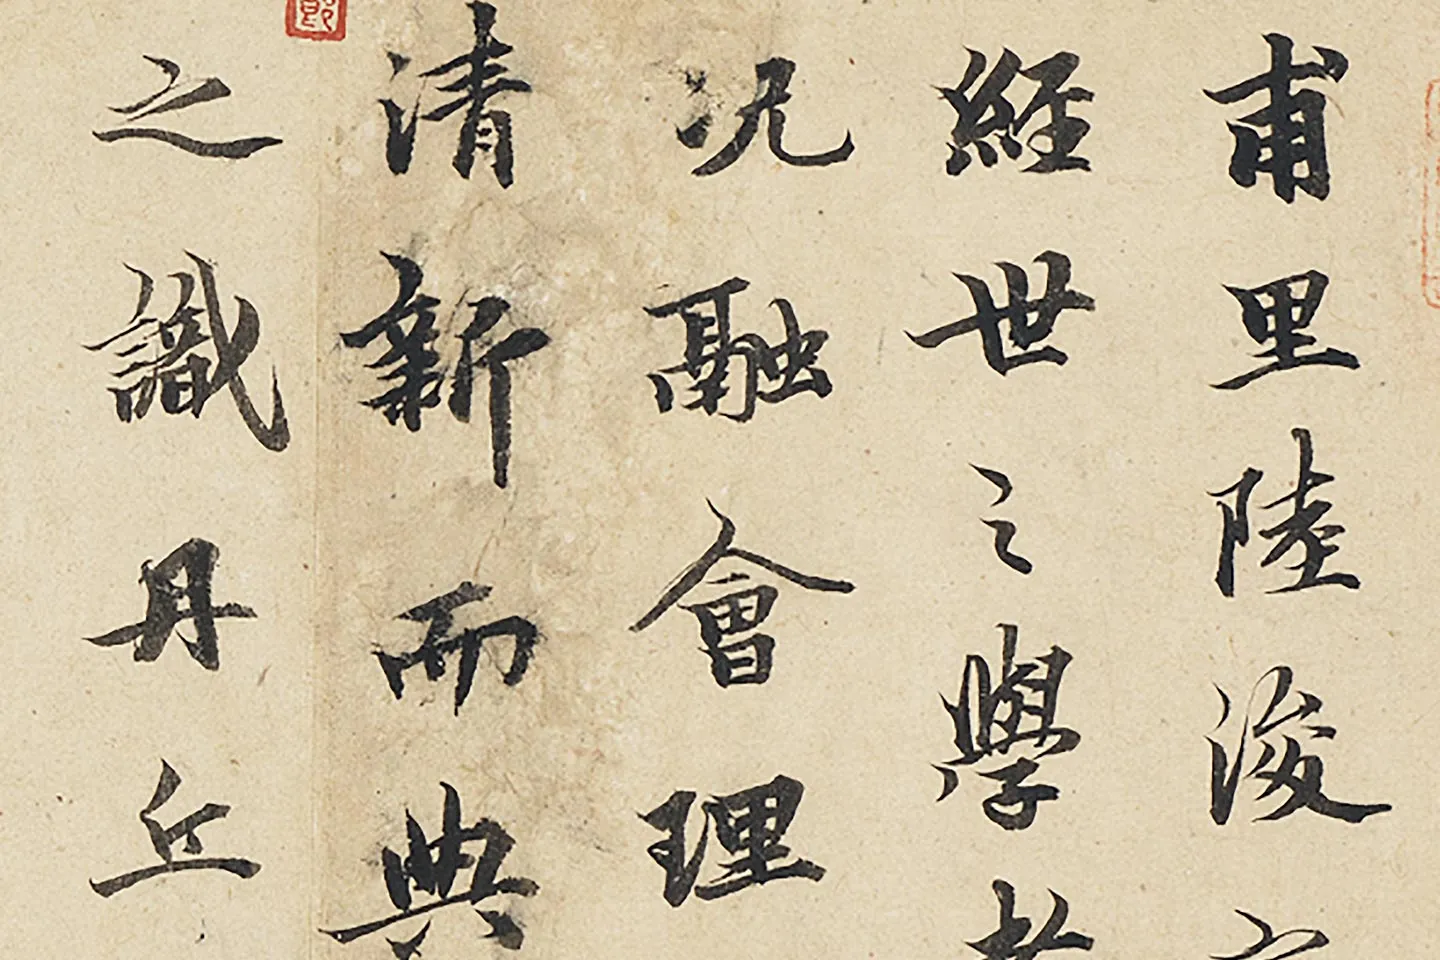 甫里陸浚
經世之學
况融會理
清新而典
之識丹丘